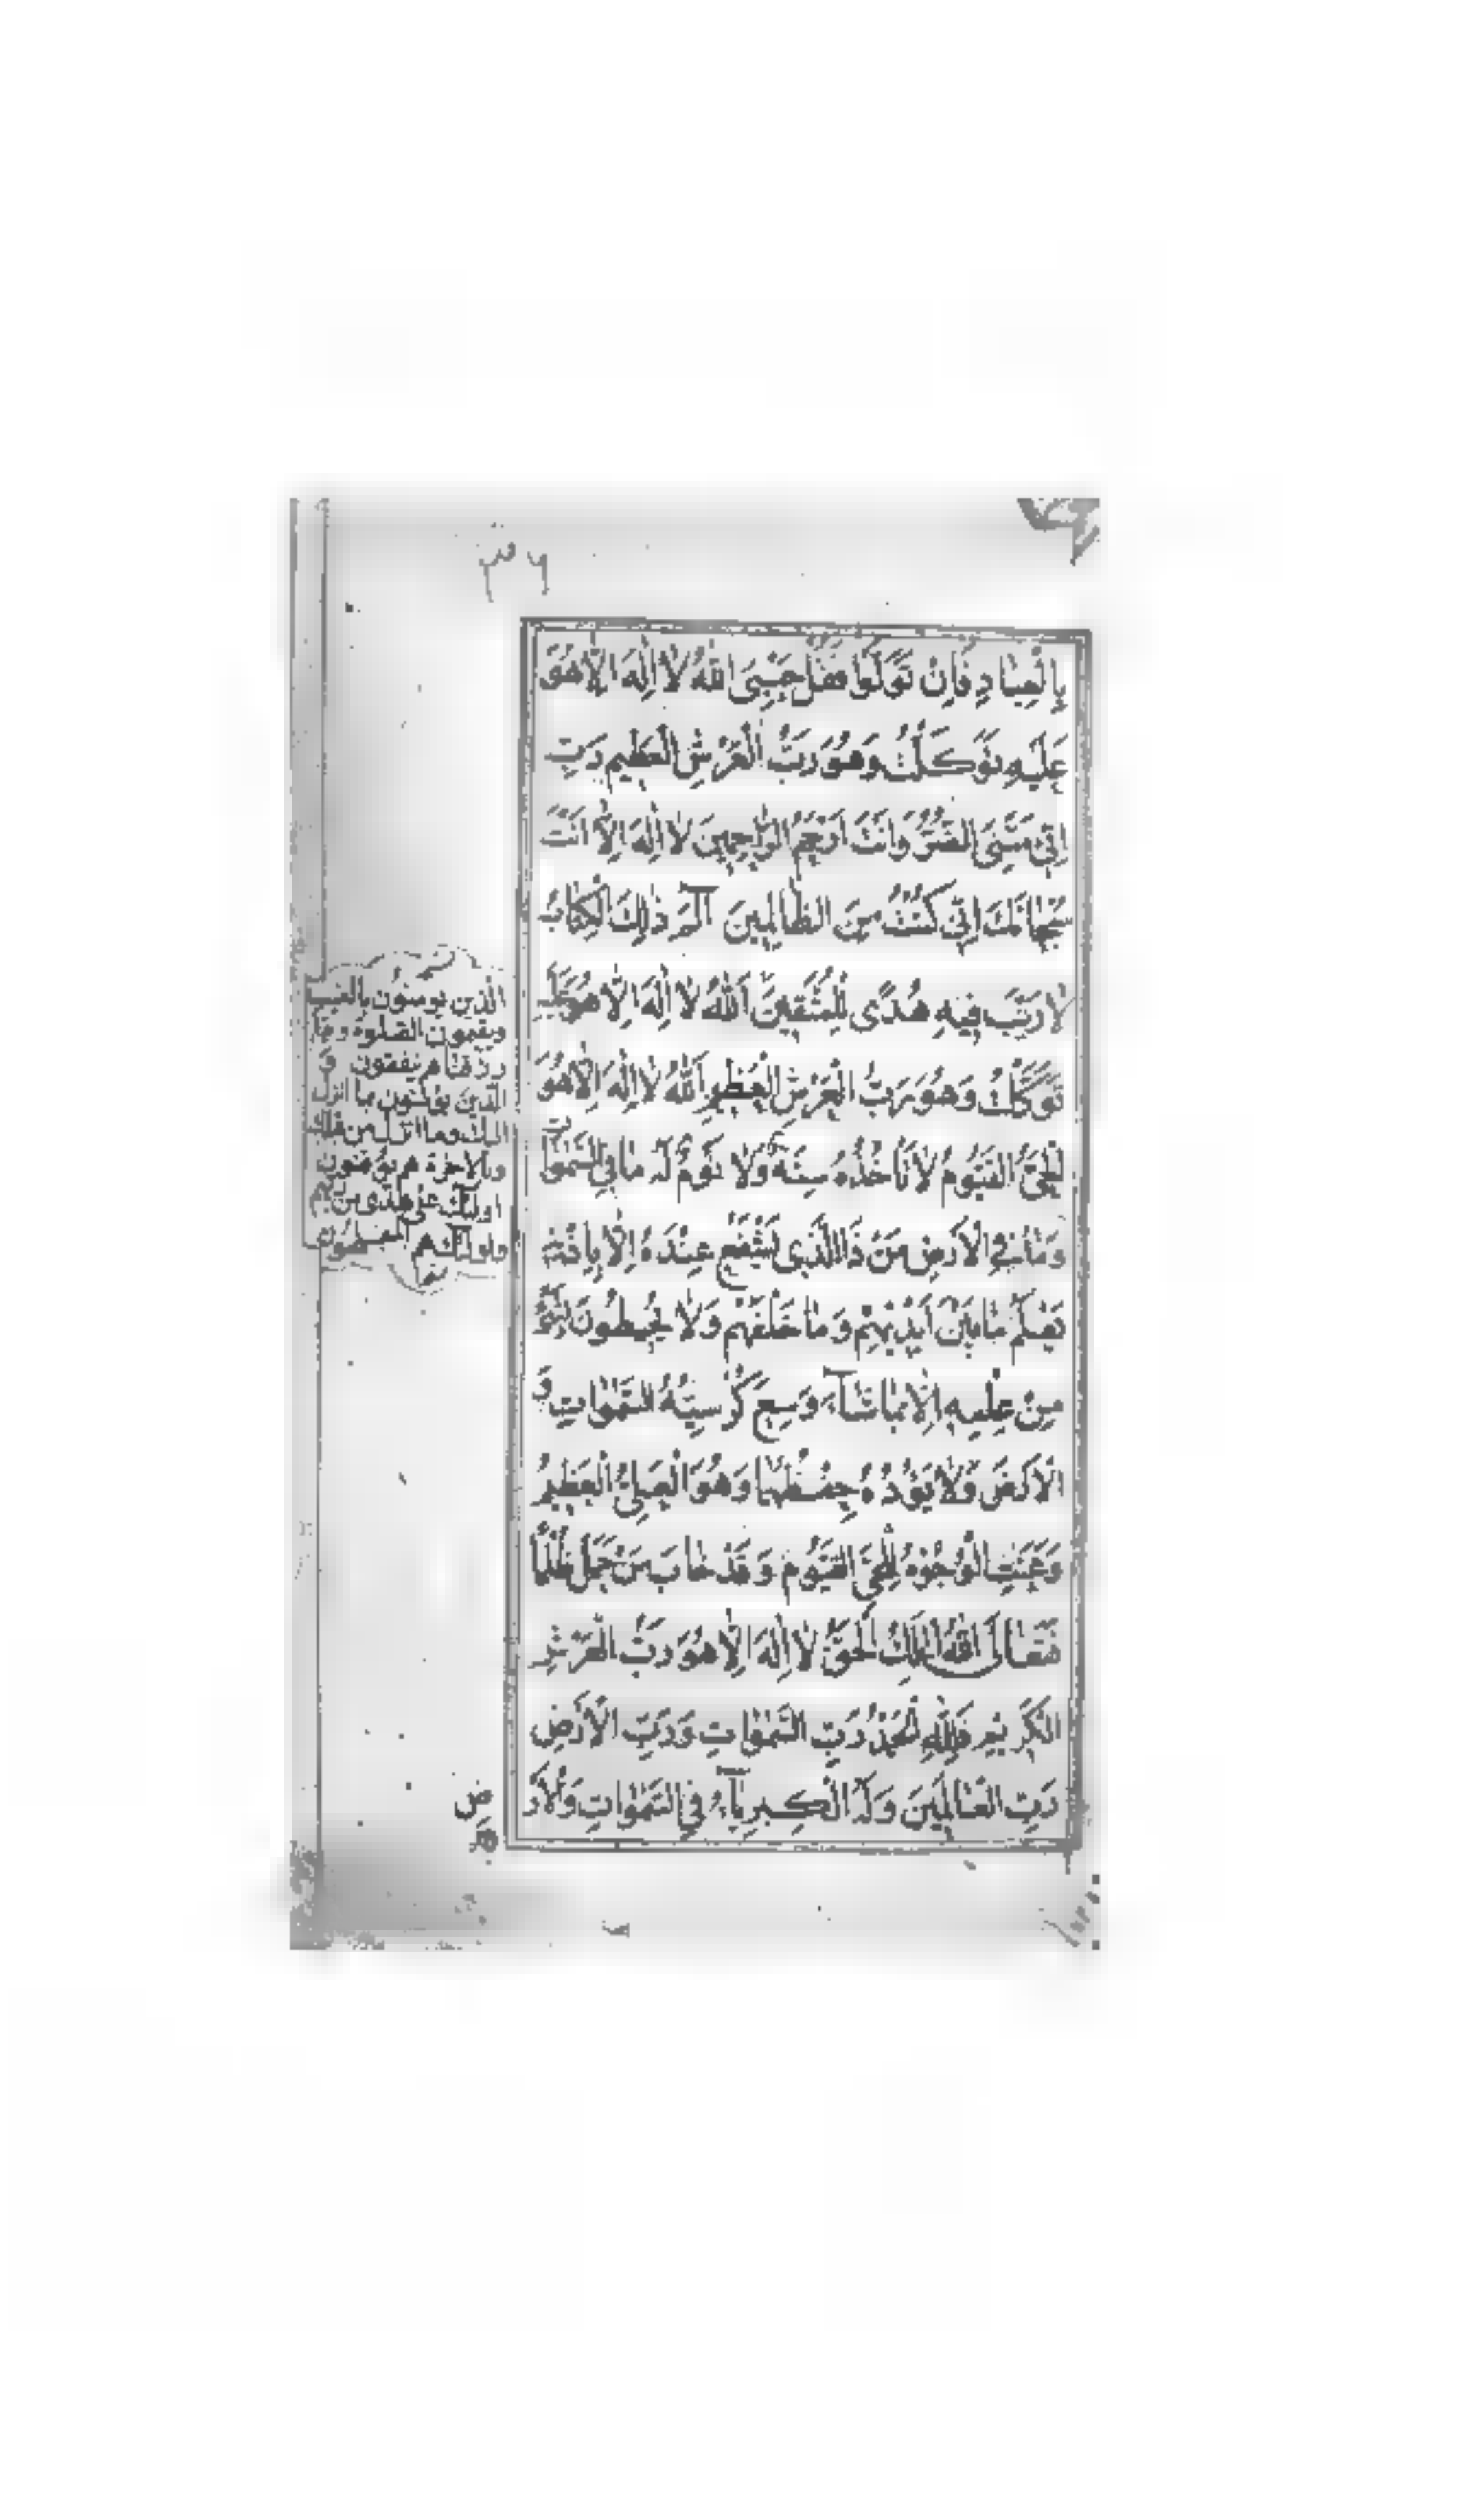 بِالْعِبَادِ فَاِنْ تَوَلَّوْا فَقُلْ حَسْبِىَ اللّٰهُ لَا اِلٰهَ اِلَّا هُوَ
عَلَيْهِ تَوَكَّلْتُ وَهُوَ رَبُّ الْعَرْشِ الْعَظِيمِ رَبِّ
اِنِّى مَسَّنِىَ الضُّرُّ وَاَنْتَ اَرْحَمُ الرَّاحِمِينَ لَا اِلٰهَ اِلَّا اَنْتَ
سُبْحَانَكَ اِنِّى كُنْتُ مِنَ الظَّالِمِينَ الٓمٓ ذٰلِكَ الْكِتَابُ
لَا رَيْبَ فِيهِ هُدًى لِلْمُتَّقِينَ اَللّٰهُ لَا اِلٰهَ اِلَّا هُوَ عَلَيْهِ
تَوَكَّلْتُ وَهُوَ رَبُّ الْعَرْشِ الْعَظِيمِ اَللّٰهُ لَا اِلٰهَ اِلَّا هُوَ
الْحَىُّ الْقَيُّومُ لَا تَأْخُذُهُ سِنَةٌ وَلَا نَوْمٌ لَهُ مَا فِى السَّمٰوَاتِ
وَمَا فِى الْاَرْضِ مَنْ ذَا الَّذِى يَشْفَعُ عِنْدَهُ اِلَّا بِاِذْنِهِ
يَعْلَمُ مَا بَيْنَ اَيْدِيهِمْ وَمَا خَلْفَهُمْ وَلَا يُحِيطُونَ بِشَىْءٍ
مِنْ عِلْمِهِ اِلَّا بِمَا شَآءَ وَسِعَ كُرْسِيُّهُ السَّمٰوَاتِ وَ
الْاَرْضَ وَلَا يَؤُدُهُ حِفْظُهُمَا وَهُوَ الْعَلِىُّ الْعَظِيمُ
وَعَنَتِ الْوُجُوهُ لِلْحَىِّ الْقَيُّومِ وَقَدْ خَابَ مَنْ حَمَلَ ظُلْمًا
فَتَعَالَى اللّٰهُ الْمَلِكُ الْحَقُّ لَا اِلٰهَ اِلَّا هُوَ رَبُّ الْعَرْشِ
الْكَرِيمِ فَلِلّٰهِ الْحَمْدُ رَبِّ السَّمٰوَاتِ وَرَبِّ الْاَرْضِ
رَبِّ الْعَالَمِينَ وَلَهُ الْكِبْرِيَآءُ فِى السَّمٰوَاتِ وَالْاَرْ
ضِ
الذين يومنون بالغيب
ويقيمون الصلوة ومما
رزقناهم ينفقون و
الذين يؤمنون بما انزل
اليك وما انزل من قبلك
وبالاخرة هم يوقنون
اولئك على هدى من ربهم
واولئك هم المفلحون